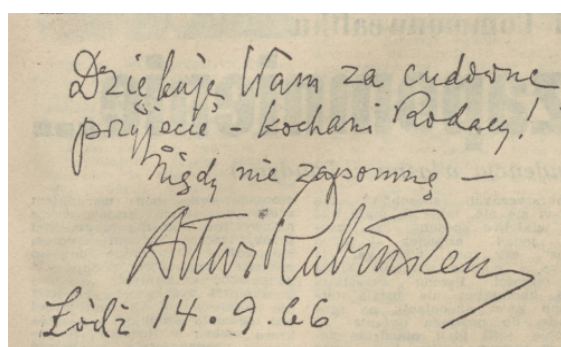 Dziękuję Wam za cudowne
przyjęcie - kochani Rodacy!
Nigdy nie zapomnę -
Artur Rubinstein
Łódź 14.9.66